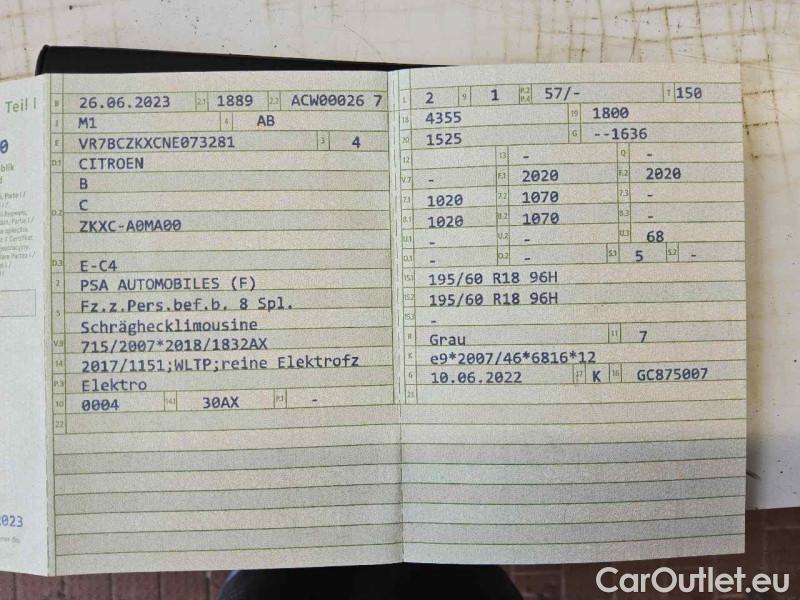 Teil I
B 26.06.2023 2.1 1889 2.2 ACW00026 7
J M1 4 AB
E VR7BCZKXCNE073281 3 4
D.1 CITROEN
B
D.2 C
ZKXC-A0MA00
D.3 E-C4
2 PSA AUTOMOBILES (F)
5 Fz.z.Pers.bef.b. 8 Spl.
Schräghecklimousine
V.9 715/2007*2018/1832AX
14 2017/1151;WLTP;reine Elektrofz
P.3 Elektro
10 0004 14.1 30AX P.1 -
22
L 2 9 1 P.2 P.4 57/- T 150
18 4355 19 1800
20 1525 G --1636
12 - 13 - Q -
V.7 - F.1 2020 F.2 2020
7.1 1020 7.2 1070 7.3 -
8.1 1020 8.2 1070 8.3 -
U.1 - U.2 - U.3 68
O.1 - O.2 - S.1 5 S.2 -
15.1 195/60 R18 96H
15.2 195/60 R18 96H
15.3 -
R Grau 11 7
K e9*2007/46*6816*12
6 10.06.2022 17 K 16 GC875007
21
2023
CarOutlet.eu